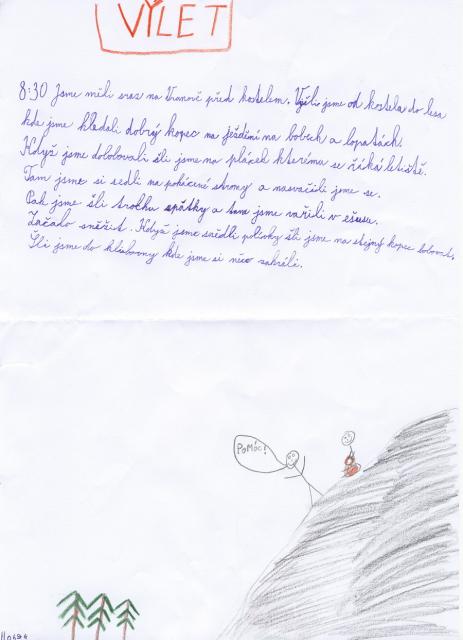 VÝLET
8:30 Jsme měli sraz na Vranově před kostelem. Vyšli jsme od kostela do lesa
kde jsme hledali dobrý kopec na ježdění na bobech a lopatách.
Když jsme dobobovali šli jsme na plácek kterému se říká letiště.
Tam jsme si sedli na pokácené stromy a nasvačili jsme se.
Pak jsme šli trochu spátky a tam jsme vařili v ešusu.
Začalo sněžit. Když jsme snědli polívky šli jsme na stejný kopec bobovat.
Šli jsme do klubovny kde jsme si něco zahráli.
POMÓC!